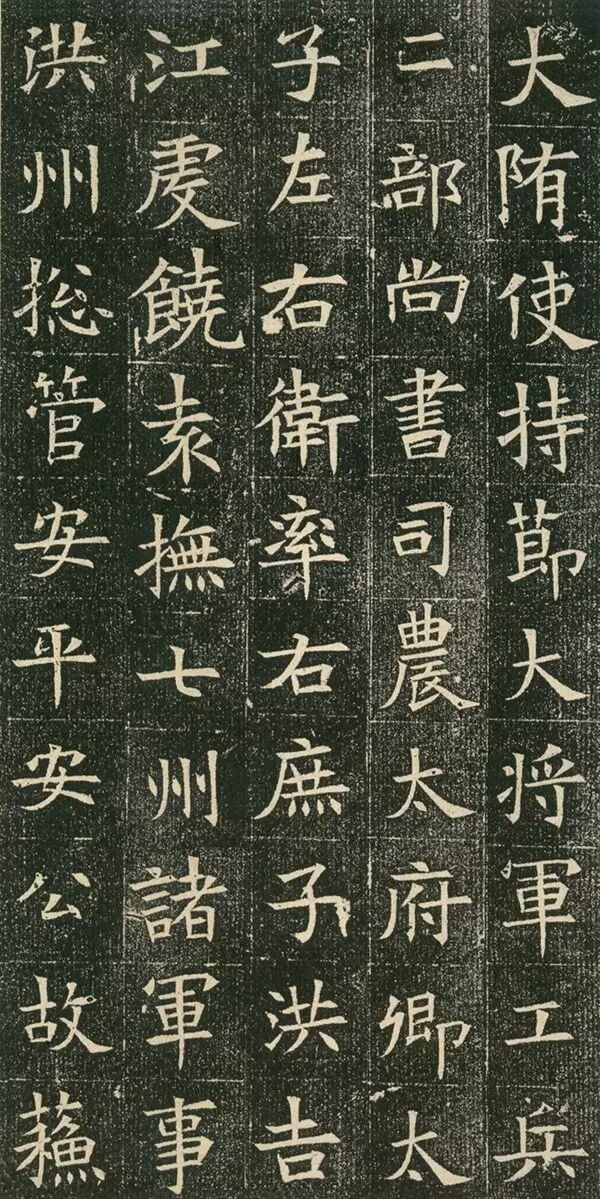 大隋使持節大將軍工兵
二部尚書司農太府卿太
子左右衛率右庶子洪吉
江虔饒袁撫七州諸軍事
洪州捴管安平安公故蘇